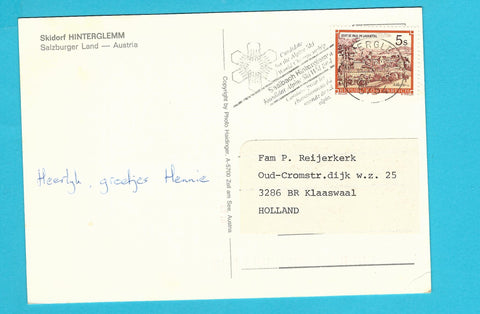 Skidorf HINTERGLEMM
Salzburger Land — Austria
Heerlyk, groetjes Hennie
Copyright by Photo Haidinger, A-5700 Zell am See, Austria
Saalbach Hinterglemm
5s
Fam P. Reijerkerk
Oud-Cromstr.dijk w.z. 25
3286 BR Klaaswaal
HOLLAND